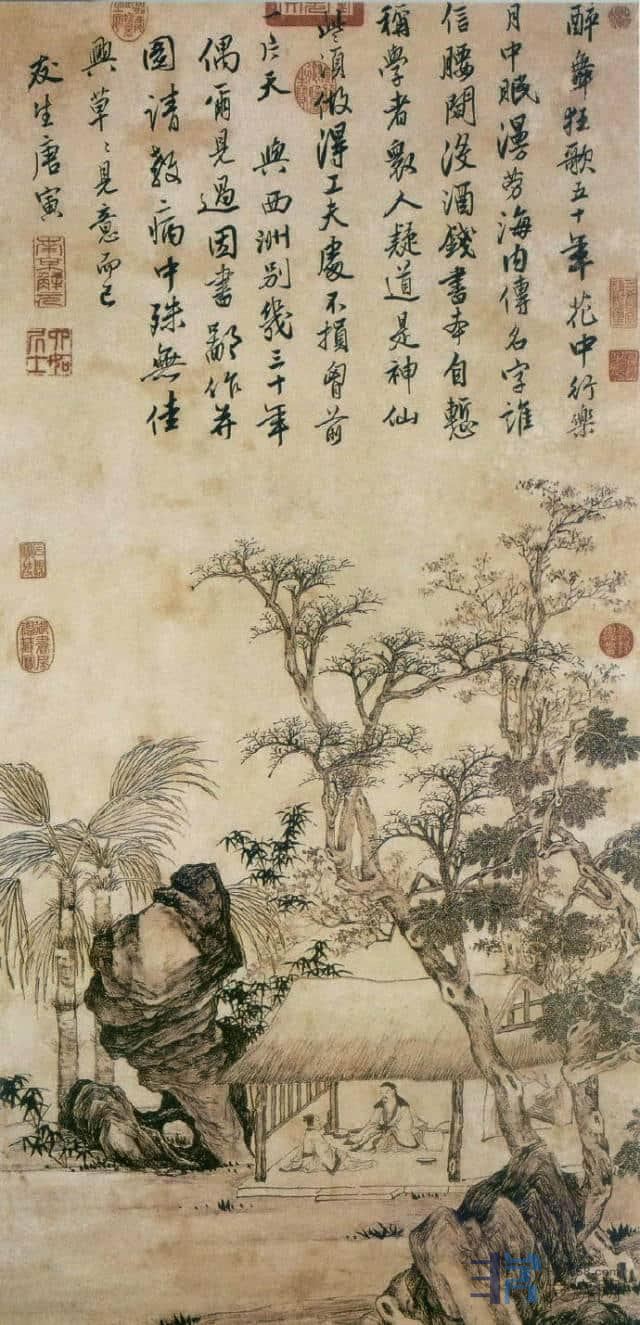 醉舞狂歌五十年花中行樂
月中眠漫勞海内傳名字誰
信腰間没酒錢書本自慙
稱學者衆人疑道是神仙
些須做得工夫處不損胷前
一片天 與西洲別幾三十年
偶爾見過因書鄙作并
圖請教病中殊無佳
興草〻見意而已
友生唐寅
南京解元
六如居士